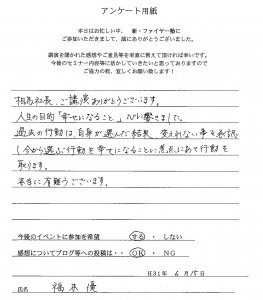 アンケート用紙
本日はお忙しい中、新・ファイヤー塾に
ご参加いただきまして、誠にありがとうございました。
講演を聞かれた感想やご意見等を率直に教えて頂ければ幸いです。
今後のセミナー内容等に活かしていきたいと思っておりますので
ご協力の程、宜しくお願い致します！
相馬社長、ご講演ありがとうございます。
人生の目的「幸せになること」心に響きました。
過去の行動は、自身が選んだ結果、変えれない事を承認
し今から選ぶ行動を幸せになることに焦点にあて行動を
取ります。
本当に有難うございます。
今後のイベントに参加を希望 する ・ しない
感想についてブログ等への投稿は・・ OK ・ NG
H31年 6月15日
氏名 福本 優